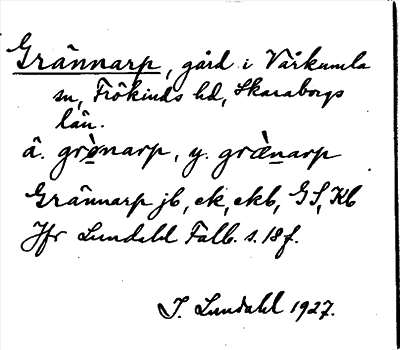 Grännarp, gård i Vårkumla
sn, Frökinds hd, Skaraborgs
län.
ä. grònarp, y. græ̀narp
Grännarp jb, ek, ekb, GS, Kb
Jfr Lundahl Falb. s. 18 f.
I. Lundahl 1927.